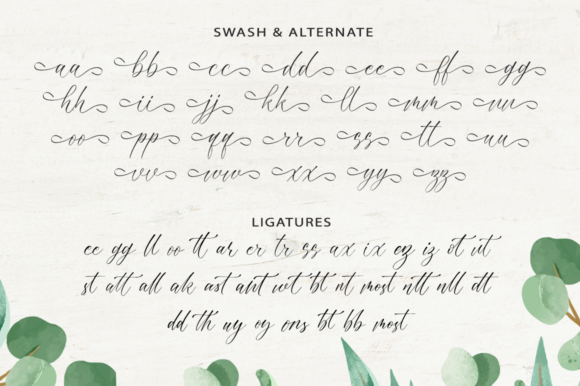 SWASH & ALTERNATE
aa bb cc dd ee ff gg
hh ii jj kk ll mm nn
oo pp qq rr ss tt uu
vv ww xx yy zz
LIGATURES
ee gg ll oo tt ar er tr ss ax ix ez iz ot ut
st att all ak ast ant wt bt nt most ntt nll dt
dd th uy oy ons bt bb most